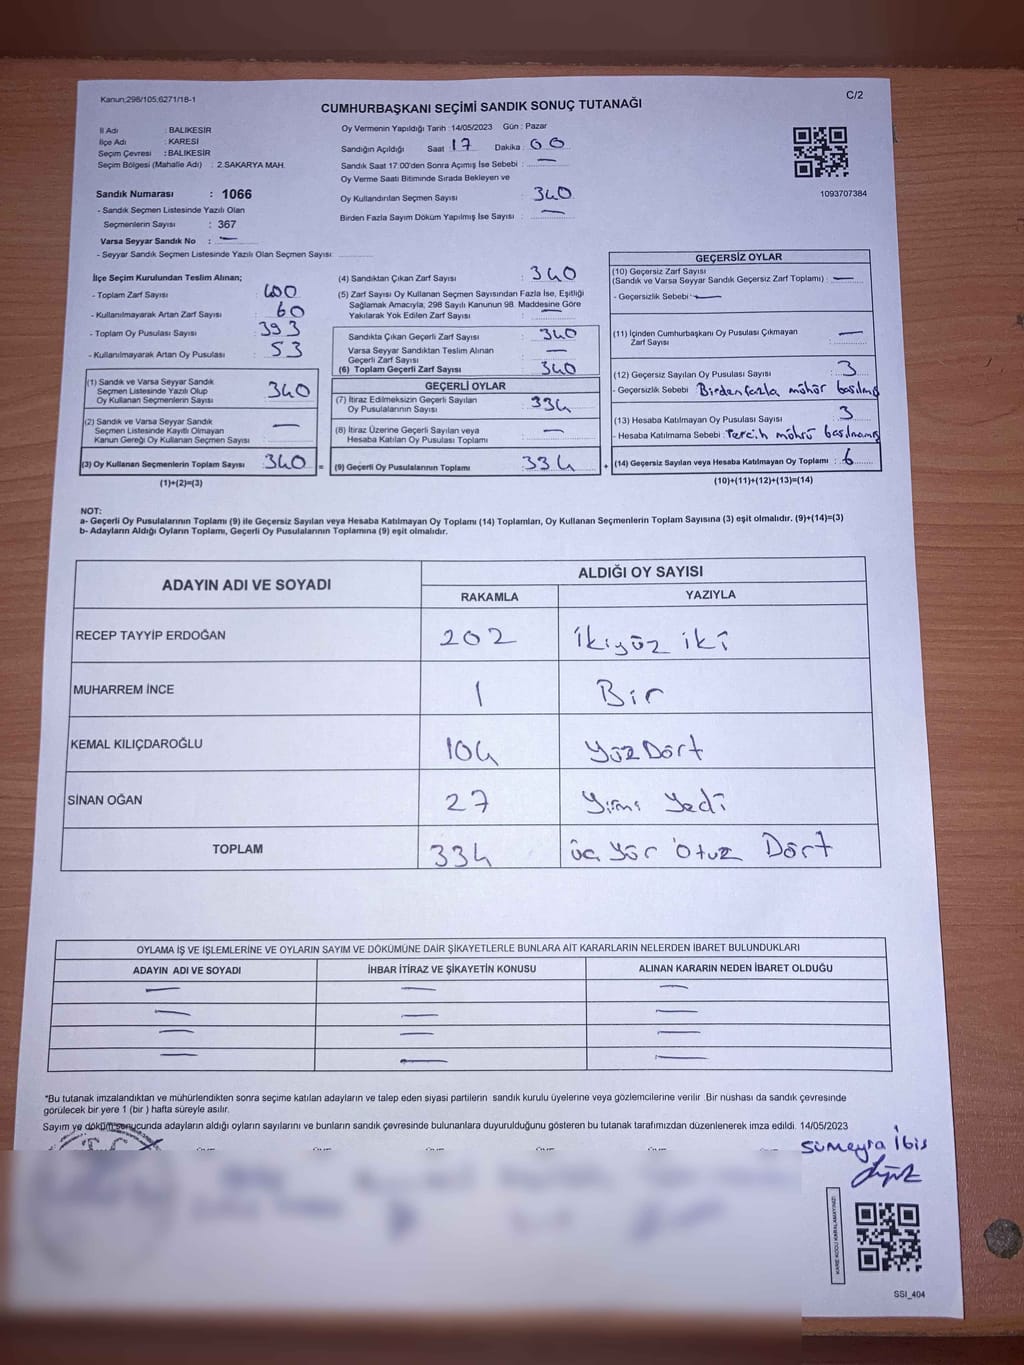 Kanun;298/105;6271/18-1
C/2
CUMHURBAŞKANI SEÇİMİ SANDIK SONUÇ TUTANAĞI
İl Adı : BALIKESİR
İlçe Adı : KARESİ
Seçim Çevresi : BALIKESİR
Seçim Bölgesi (Mahalle Adı) : 2.SAKARYA MAH.
Sandık Numarası : 1066
- Sandık Seçmen Listesinde Yazılı Olan
Seçmenlerin Sayısı : 367
Varsa Seyyar Sandık No : —
- Seyyar Sandık Seçmen Listesinde Yazılı Olan Seçmen Sayısı:
Oy Vermenin Yapıldığı Tarih :14/05/2023 Gün : Pazar
Sandığın Açıldığı Saat : 17 Dakika : 00
Sandık Saat 17:00'den Sonra Açımış İse Sebebi : —
Oy Verme Saati Bitiminde Sırada Bekleyen ve
Oy Kullandırılan Seçmen Sayısı : 340
Birden Fazla Sayım Döküm Yapılmış İse Sayısı : —
1093707384
İlçe Seçim Kurulundan Teslim Alınan;
- Toplam Zarf Sayısı : 400
- Kullanılmayarak Artan Zarf Sayısı : 60
- Toplam Oy Pusulası Sayısı : 393
- Kullanılmayarak Artan Oy Pusulası : 53
(1) Sandık ve Varsa Seyyar Sandık
Seçmen Listesinde Yazılı Olup
Oy Kullanan Seçmenlerin Sayısı : 340
(2) Sandık ve Varsa Seyyar Sandık
Seçmen Listesinde Kayıtlı Olmayan
Kanun Gereği Oy Kullanan Seçmen Sayısı : —
(3) Oy Kullanan Seçmenlerin Toplam Sayısı : 340
(1)+(2)=(3)
(4) Sandıktan Çıkan Zarf Sayısı : 340
(5) Zarf Sayısı Oy Kullanan Seçmen Sayısından Fazla İse, Eşitliği
Sağlamak Amacıyla, 298 Sayılı Kanunun 98. Maddesine Göre
Yakılarak Yok Edilen Zarf Sayısı : —
Sandıkta Çıkan Geçerli Zarf Sayısı : 340
Varsa Seyyar Sandıktan Teslim Alınan
Geçerli Zarf Sayısı : —
(6) Toplam Geçerli Zarf Sayısı : 340
GEÇERLİ OYLAR
(7) İtiraz Edilmeksizin Geçerli Sayılan
Oy Pusulalarının Sayısı : 334
(8) İtiraz Üzerine Geçerli Sayılan veya
Hesaba Katılan Oy Pusulası Toplamı : —
= (9) Geçerli Oy Pusulalarının Toplamı : 334
GEÇERSİZ OYLAR
(10) Geçersiz Zarf Sayısı
(Sandık ve Varsa Seyyar Sandık Geçersiz Zarf Toplamı) : —
- Geçersizlik Sebebi : —
(11) İçinden Cumhurbaşkanı Oy Pusulası Çıkmayan
Zarf Sayısı : —
(12) Geçersiz Sayılan Oy Pusulası Sayısı : 3
- Geçersizlik Sebebi : Birden fazla mühür basılmış
(13) Hesaba Katılmayan Oy Pusulası Sayısı : 3
- Hesaba Katılmama Sebebi : Tercih mührü basılmamış
+ (14) Geçersiz Sayılan veya Hesaba Katılmayan Oy Toplamı : 6
(10)+(11)+(12)+(13)=(14)
NOT:
a- Geçerli Oy Pusulalarının Toplamı (9) ile Geçersiz Sayılan veya Hesaba Katılmayan Oy Toplamı (14) Toplamları, Oy Kullanan Seçmenlerin Toplam Sayısına (3) eşit olmalıdır. (9)+(14)=(3)
b- Adayların Aldığı Oyların Toplamı, Geçerli Oy Pusulalarının Toplamına (9) eşit olmalıdır.
ADAYIN ADI VE SOYADI
ALDIĞI OY SAYISI
RAKAMLA YAZIYLA
RECEP TAYYİP ERDOĞAN 202 İkiyüz iki
MUHARREM İNCE 1 Bir
KEMAL KILIÇDAROĞLU 104 Yüz Dört
SİNAN OĞAN 27 Yirmi Yedi
TOPLAM 334 üç Yüz Otuz Dört
OYLAMA İŞ VE İŞLEMLERİNE VE OYLARIN SAYIM VE DÖKÜMÜNE DAİR ŞİKAYETLERLE BUNLARA AİT KARARLARIN NELERDEN İBARET BULUNDUKLARI
ADAYIN ADI VE SOYADI İHBAR İTİRAZ VE ŞİKAYETİN KONUSU ALINAN KARARIN NEDEN İBARET OLDUĞU
— — —
— — —
— — —
— — —
*Bu tutanak imzalandıktan ve mühürlendikten sonra seçime katılan adayların ve talep eden siyasi partilerin sandık kurulu üyelerine veya gözlemcilerine verilir .Bir nüshası da sandık çevresinde
görülecek bir yere 1 (bir ) hafta süreyle asılır.
Sayım ve döküm sonucunda adayların aldığı oyların sayılarını ve bunların sandık çevresinde bulunanlara duyurulduğunu gösteren bu tutanak tarafımızdan düzenlenerek imza edildi. 14/05/2023
Sümeyra İbis
KARE KODU KARALAMAYINIZ!
SSI_404